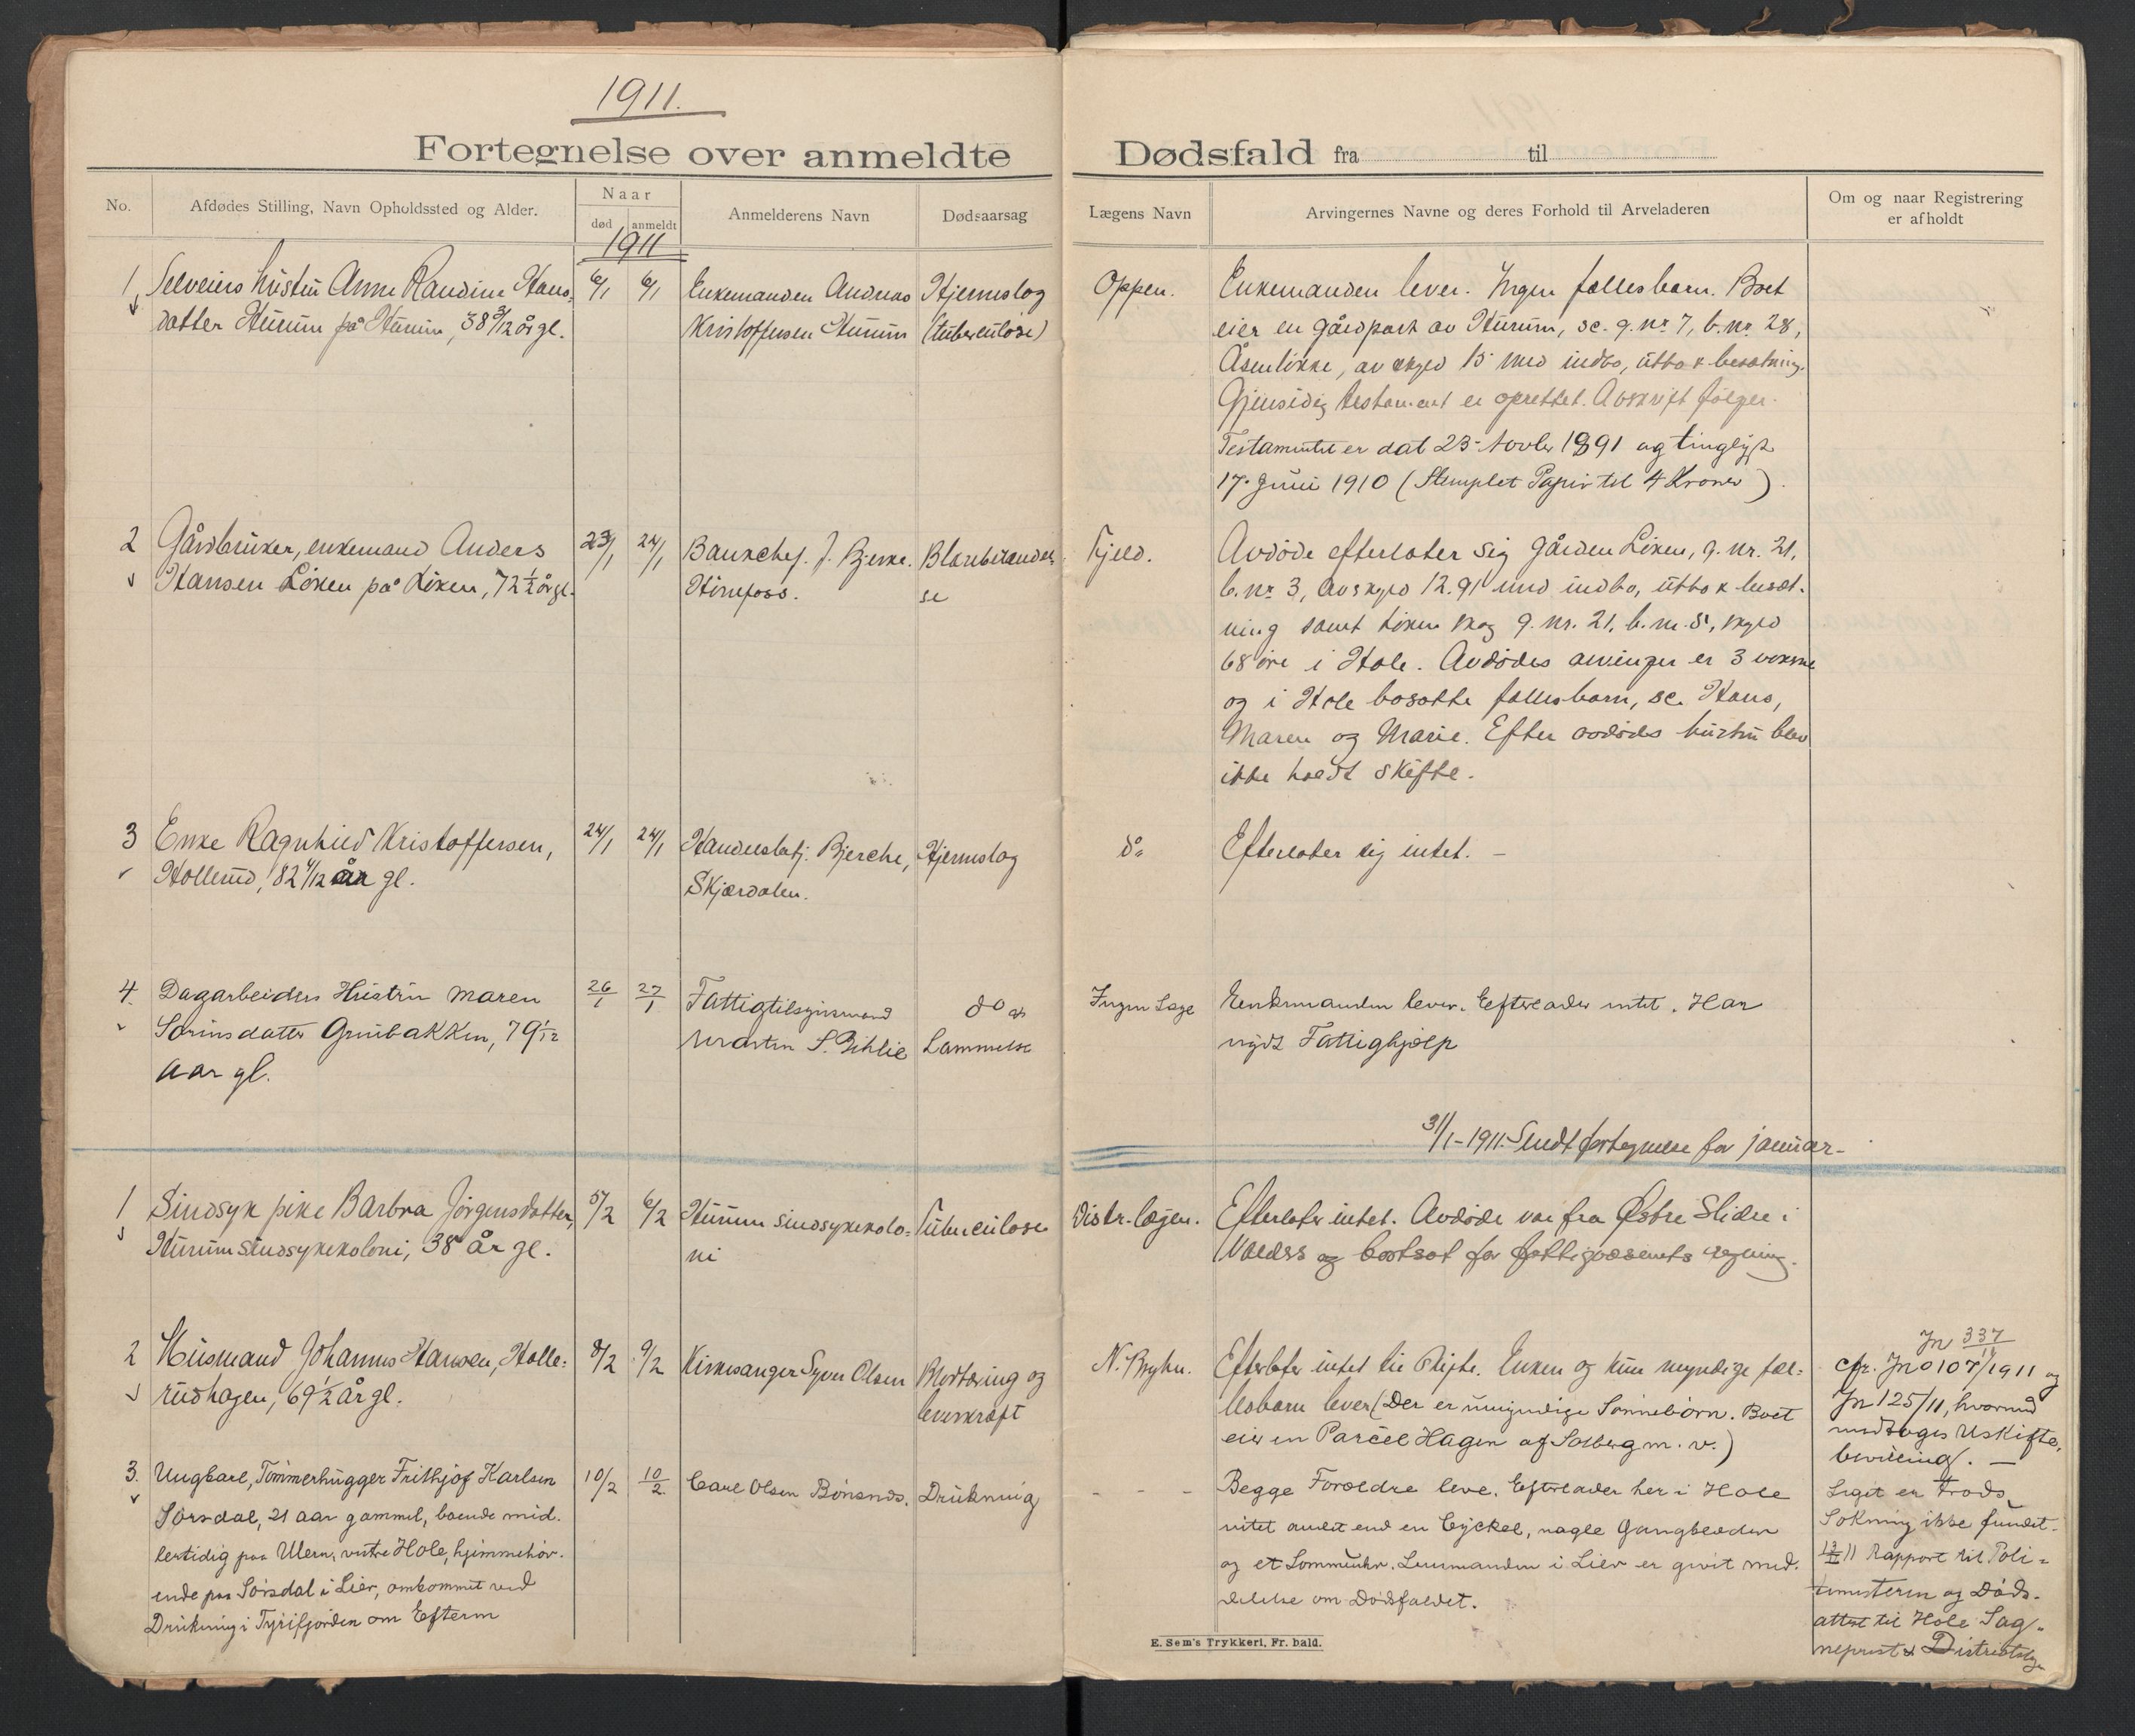 1911.
Fortegnelse over anmeldte Dødsfald fra til
No.
Afdødes Stilling, Navn Opholdssted og Alder.
Naar
død
anmeldt
Anmelderens Navn
Dødsaarsag
Lægens Navn
Arvingernes Navne og deres Forhold til Arveladeren
Om og naar Registrering
er afholdt
1911
1
Selveiers hustru Anne Randine Hans-
datter Hurum på Hurum, 38 3/12 år gl.
6/1
6/1
Enkemanden Andreas
Kristoffersen Hurum
Hjerneslag
(tuberculose)
Oppen.
Enkemanden lever. Ingen fællesbarn. Boet
eier en gårdpart av Hurum, sc. g. nr. 7, b. nr. 28,
Åsenløkke, av skyld 15 med indbo, utbo & besætning.
Gjensidig testament er oprettet. Avskrift følger.
Testamentet er dat 23 Novbr 1891 og tinglyst
17. Juni 1910 (Stemplet Papir til 4 Kroner).
2
Gårdbruker, enkemand Anders
Hansen Løken på Løken, 72 1/2 år gl.
23/1
24/1
Bankchef. J. Bjerke.
Hönefoss.
Blærebetændel-
se
Fjeld.
Avdøde efterlater sig gården Löken, g. nr. 21,
b. nr. 3, av skyld 12.91 med indbo, utbo & besæt-
ning samt Löken skog g. nr. 21, b. nr. 5, skyld
68 öre i Hole. Avdødes arvinger er 3 voksne
og i Hole bosatte fællesbarn, sc. Hans,
Maren og Marie. Efter avdødes hustru blev
ikke holdt skifte.
3
Enke Ragnhild Kristoffersen,
Hollerud, 82 4/12 år gl.
24/1
24/1
Handelsbetj. Bjerche,
Skjærdalen.
Hjerneslag
do
Efterlater sig intet. –
4.
Dagarbeiders Hustru Maren
Sörensdatter Grubakken, 79 1/12
aar gl.
26/1
27/1
Fattigtilsynsmand
Martin S. Bihlie
do &
Lammelse
Ingen Læge
Enkemanden lever. Efterlader intet. Har
nydt Fattighjælp
31/1-1911. Sendt fortegnelse for januar-
1
Sindsyk pike Barbra Jörgensdatter,
Hurum sindsykekoloni, 38 år gl.
5/2
6/2
Hurum sindsykekolo-
ni
Tuberculose
Distr. lægen.
Efterlater intet. Avdøde var fra Østre Slidre i
Valders og bortsat for fattigvæsenets regning.
2
Husmand Johannes Hansen, Holle-
rudhagen, 69 1/2 år gl.
8/2
9/2
Kirkesanger Syver Olsen
Blodtæring og
leverkræft
N. Bryhn.
Efterlater intet til skifte. Enken og kun myndige fæl-
lesbarn lever (Der er umyndige Sønnebörn. Boet
eier en Parcel Hagen af Solberg m. v.)
Jn 337/11
cfr. Jn 107/1911 og
Jn 125/11, hvorved
medtoges Uskifte-
bevilling. –
3.
Ungkarl, Tömmerhugger Frithjof Karlsen
Sørsdal, 21 aar gammel, boende mid-
lertidig paa Ulern, vestre Hole, hjemmehör-
ende paa Sörsdal i Lier, omkommet ved
Drukning i Tyrifjorden om Efterm
10/2
10/2
Carl Olsen Bönsnds.
Drukning
- - -
Begge Forældre leve. Efterlader her i Hole
intet andet end en Cyckel, nogle Gangklæder
og et Lommeuhr. Lensmanden i Lier er givit med-
delelse om Dødsfaldet.
Liget er trods
Sökning ikke fundet.
13/2 11 Rapport til Poli-
timesteren og Döds-
attest til Hole Sog-
neprest & Distriktslæge
E. Sem's Trykkeri, Fr. hald.